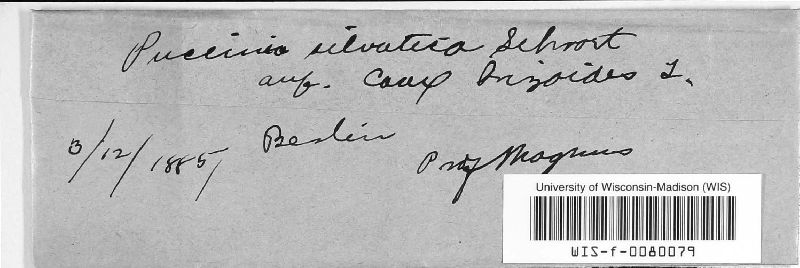 Puccinia silvatica Schroet
auf. Carex brizoides L.
3/12/1885, Berlin
Prof Magnus
University of Wisconsin-Madison (WIS)
WIS-f-0080079